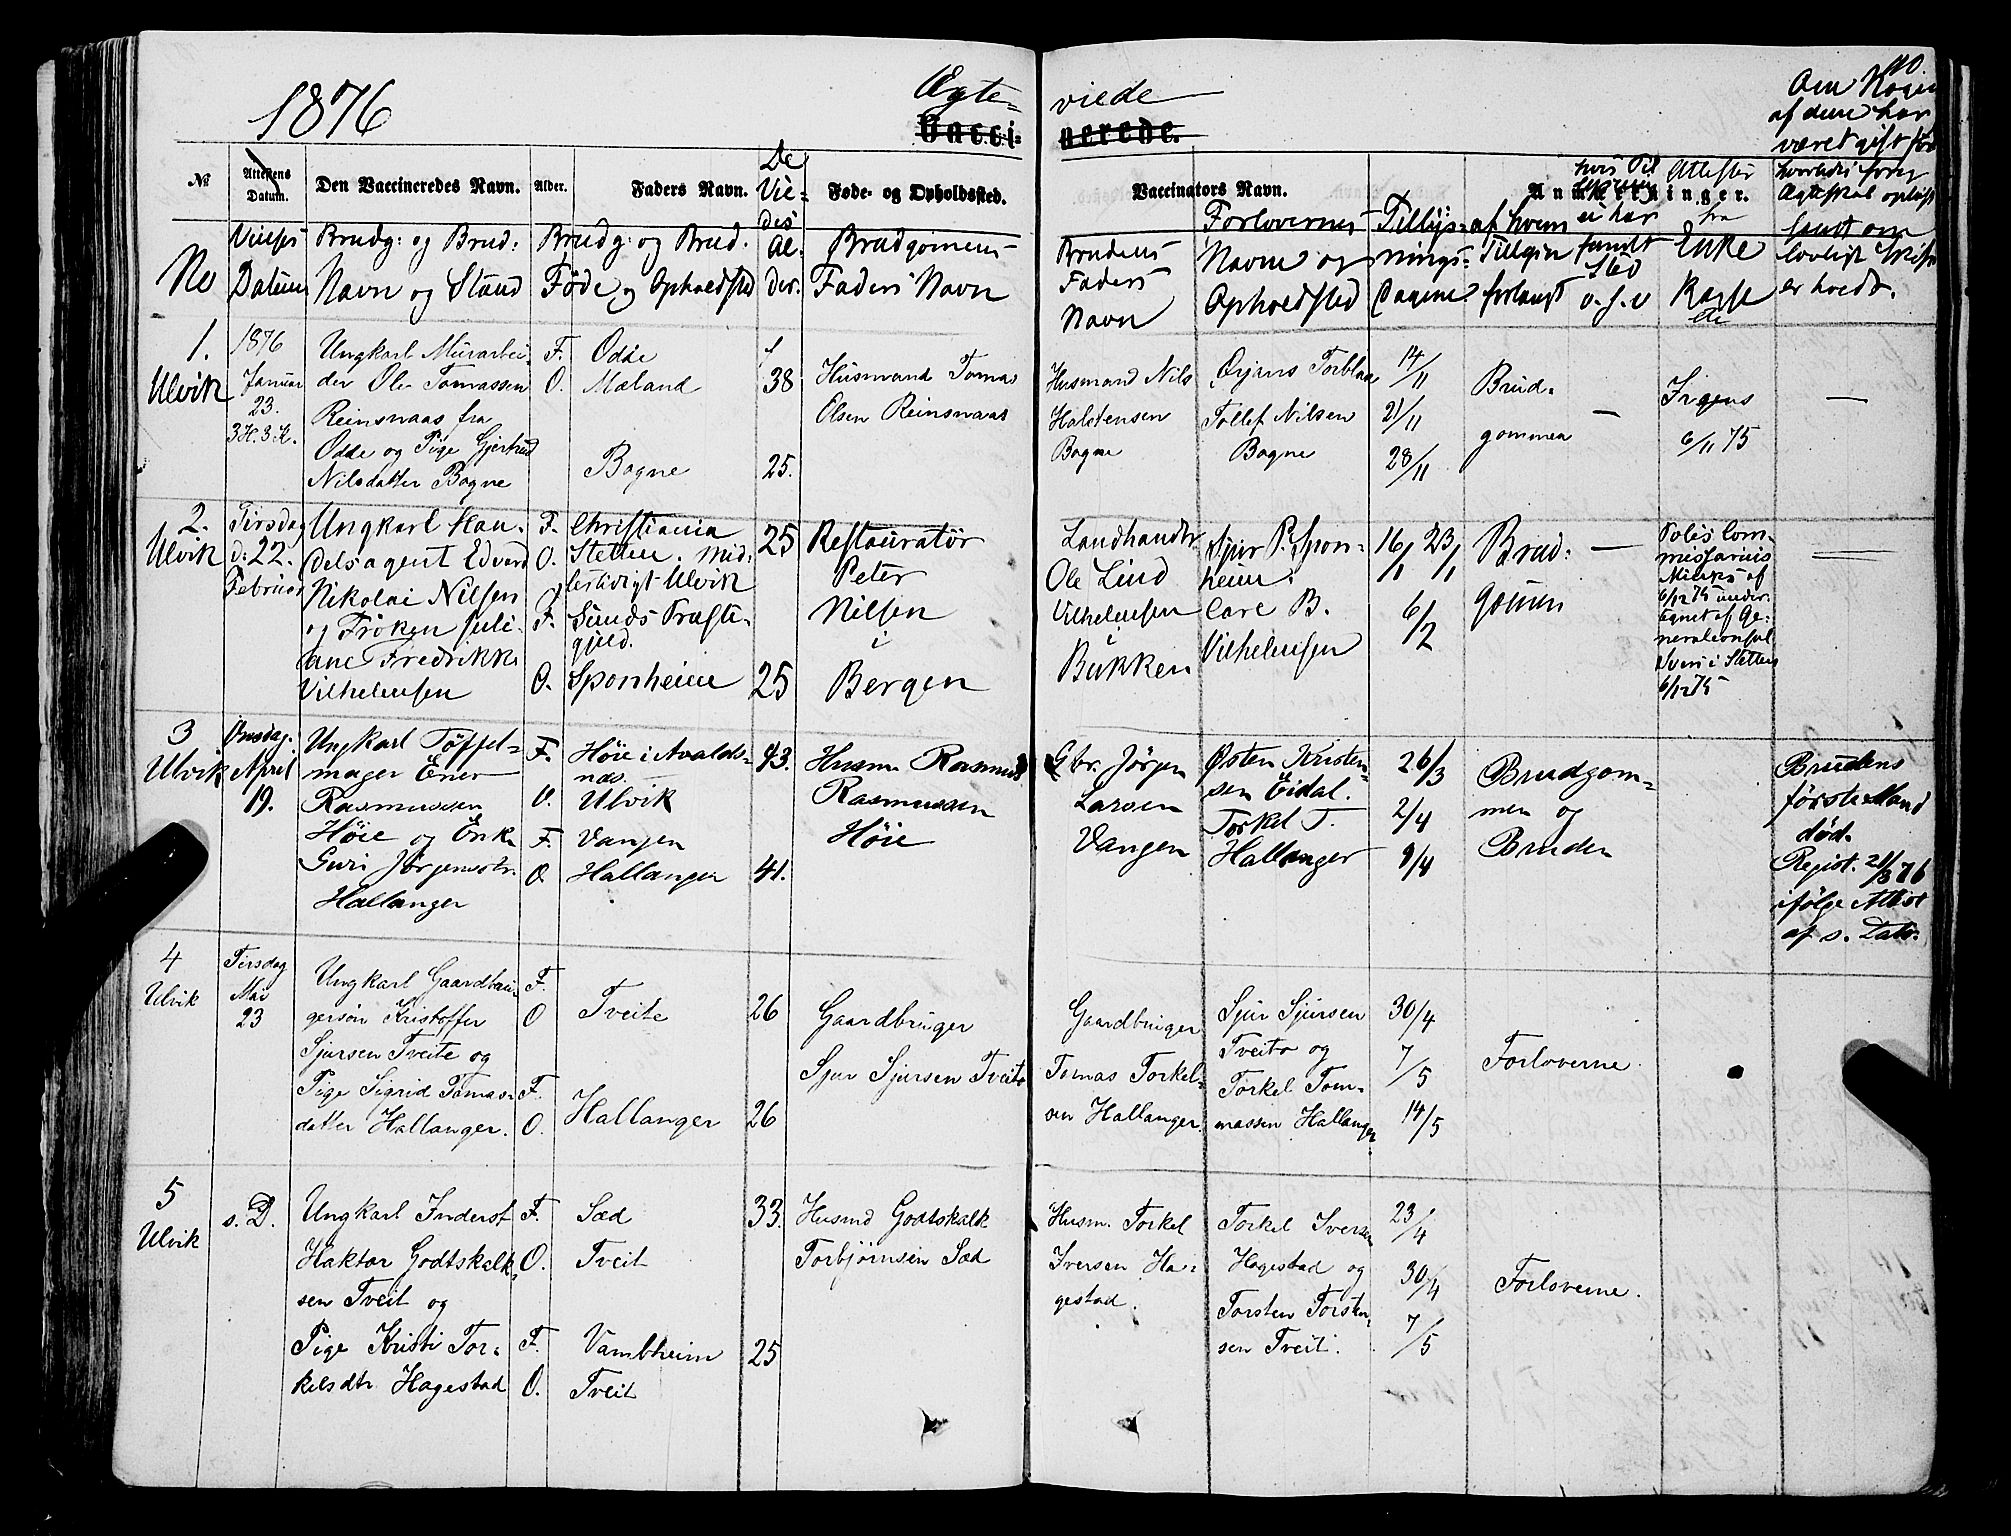 1876
Ægte=
viede
Vacci=
nerede.
Om Nogen
af dem har
været gift før
№
Attestens
Datum.
Den Vaccineredes Navn.
Alder.
Faders Navn.
Føde- og Opholdssted.
Vaccinators Navn.
Anmærkninger.
No
Vielses
Datum
Brudg: og Brud:
Navn og Stand
Brudg: og Brud.
Føde og Opholdsted
De
Vie=
des
Al=
der.
Brudgommens
Faders Navn
Brudens
Faders
Navn
Forlovernes
Navne og
Opholdsted
Tillys=
nings=
Dagene
af hvem
Tillysn
forlangt
ei har
fundt
sted
o. s. v
Attester
fra
Enke
Kasse
etc
hvorledes forrig
Ægteskab opløst
samt om
lovligt Skifte
er holdt.
1.
Ulvik
1876
Januar
23.
3 K. 3 K.
Ungkarl Murarbei
der Ole Tomassen
Reinsnaas fra
Odde og Pige Gjertrud
Nilsdatter Bagne
F. Odde
O. Mæland
Bagne
38
25.
Husmand Tomas
Olsen Reinsnaas
Husmand Nils
Halstensen
Bagne
Ørjans Torblaa
Tollef Nilsen
Bagne
14/11
21/11
28/11
Brud=
gommen
—
Irgens
6/11 75
—
2.
Ulvik
Tirsdag
d: 22.
Februar
Ungkarl Han=
delsagent Edvard
Nikolai Nilsen
og Frøken Juli=
ane Fredrikke
Vilhelmsen
F. Christiania
O. Stettin. Mid=
lertidigt Ulvik
F. Sunds Præste=
gjeld.
O. Sponheim
25
25
Restauratør
Peter
Nilsen
i
Bergen
Landhandlr
Ole Lind
Vilhelmsen
i
Bukken
Sjur P. Spon=
heim.
Carl B.
Vilhelmsen
16/1 23/1
6/2
Brud=
gomen
—
Polis Com=
missarius
6/12 75 under=
tegnet af Ge=
neralconsul
i Stettin
6/12 75
3
Ulvik
Onsdag.
April
19.
Ungkarl Tøffel=
mager Ener
Rasmussen
Høie og Enke
Guri Jørgensdtr.
Hallanger
F. Høie i Avalds=
næs.
O. Ulvik
F. Vangen
O. Hallanger
43.
41.
Husm. Rasmus
Rasmussen
Høie
Gbr. Jørgen
Larsen
Vangen
Østen Kristen=
sen Eidal.
Torkel T.
Hallanger
26/3
2/4
9/4
Brudgom=
men og
Bruden
Brudens
første Mand
død.
Regist. 21/3 76
ifølge Attest
af s. Dato.
4
Ulvik
Tirsdag
Mai
23
Ungkarl Gaardbru=
gersøn Kristoffer
Sjursen Tveite og
Pige Sigrid Tomas=
datter Hallanger.
F.
O
Tveite
F.
O.
Hallanger
26
26
Gaardbruger
Sjur Sjursen Tveito
Gaardbruger
Tomas Torkel=
sen Hallanger.
Sjur Sjursen
Tveito og
Torkel Tom=
massen Hallanger
30/4
7/5
14/5
Forloverne.
5
Ulvik
s. D.
Ungkarl Inderst
Haktor Godtskalk=
sen Tveit og
Pige Kristi Tor=
kelsdtr Hagestad
F. Sæd
O. Tveit
F. Vambheim
O. Tveit
33.
25
Husmd Godtskalk
Torbjørnsen Sæd
Husm. Torkel
Iversen Ha=
gestad.
Torkel Iversen
Hagestad og
Torsten Torsten=
sen Tveit.
23/4
30/4
7/5
Forloverne.